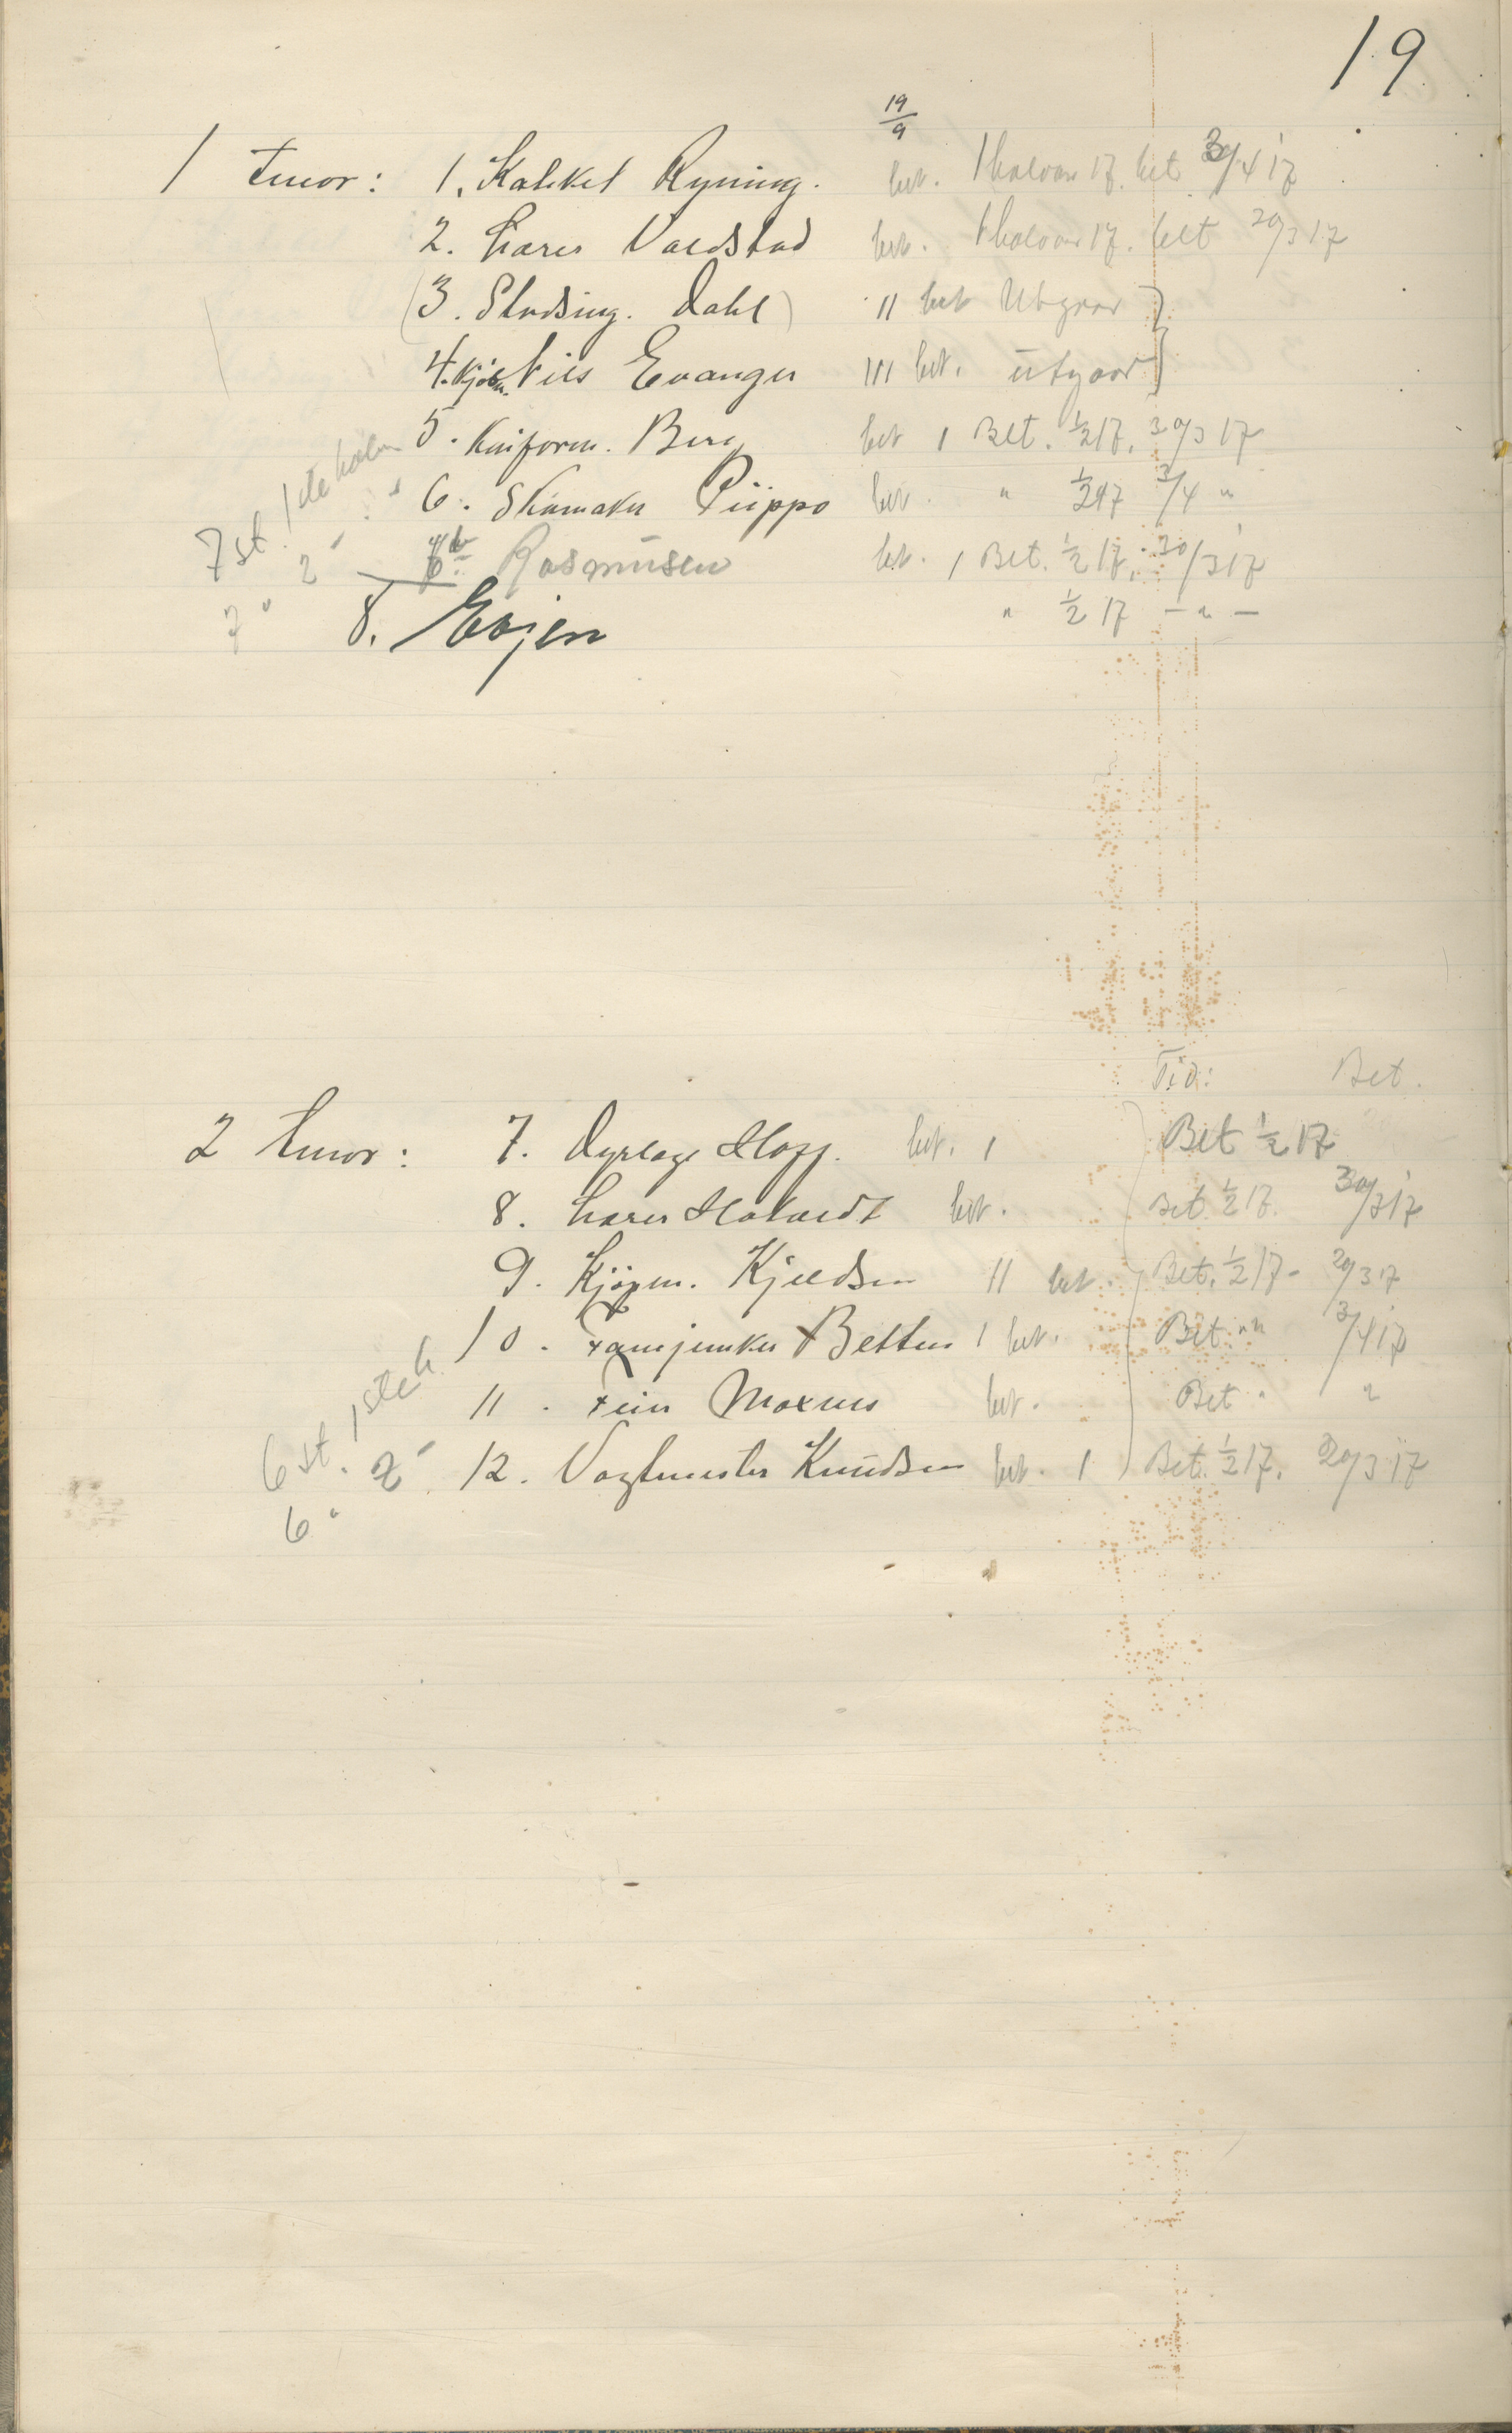 19
19/9
1 tenor: 1. Ryning. bet. 1 halvaar 17. bet 30/4 17
2. Lærer Valdstad bet. 1 halvaar 17. bet 29/3 17
(3. Dahl) II bet Utgaar
4. Kjøbm. Nils Evanger III bet. utgaar
5. Berg bet 1 Bet. 1/2 17. 30/3 17
6. Skomaker Piippo bet. " 1/2 17 3/4 "
7st. 1ste halv
Rasmusen bet. 1 Bet. 1/2 17. 30/3 17
7 " 2 "
8. Evjen " 1/2 17 - " -
Tid: Bet.
2 tenor: 7. Dyrlæge Hopp. bet. 1 Bet 1/2 17
8. Lærer bet. Bet 1/2 17. 30/3 17
9. Kjøpm. Kjeldsen II bet. Bet. 1/2 17 - 29/3 17
10. Betten 1 bet. Bet " " 3/4 17
11. bet. Bet " "
6 st. 1ste h
12. Vagtmester Knudsen bet. 1 Bet. 1/2 17. 30/3 17
6 " 2 "